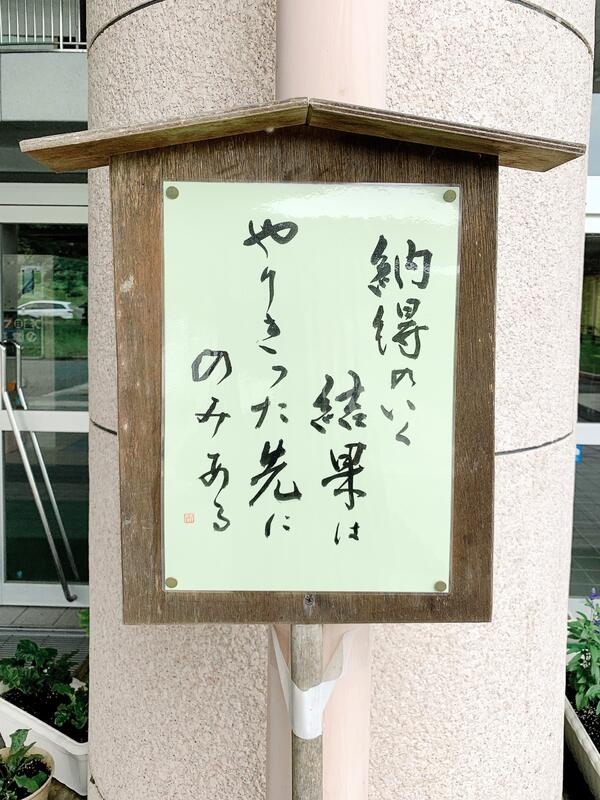 納得のいく
結果は
やりきった先に
のみある